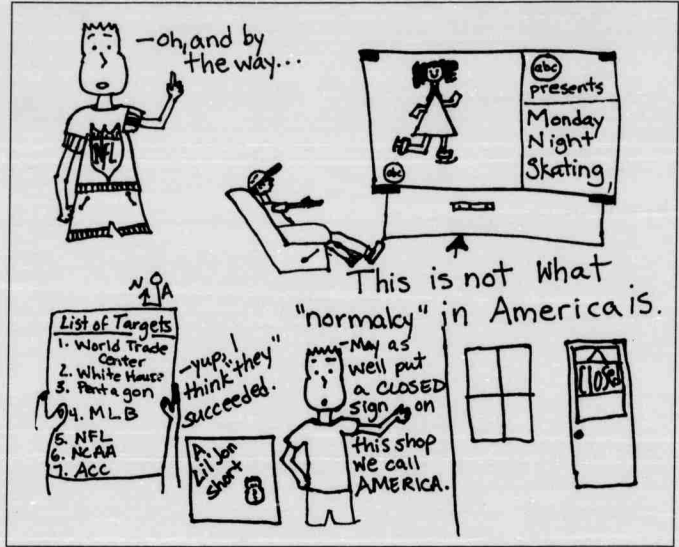 -oh, and by
the way...
NFL
abc
presents
Monday
Night
Skating
abc
This is not what
"normalcy" in America is.
N
A
List of Targets
1. World Trade
Center
2. White House
3. Pentagon
4. MLB
5. NFL
6. NCAA
7. ACC
-yup, I
think "they"
succeeded.
A
Lil Jon
Short
-May as
well put
a CLOSED
sign on
this shop
we call
AMERICA.
Closed